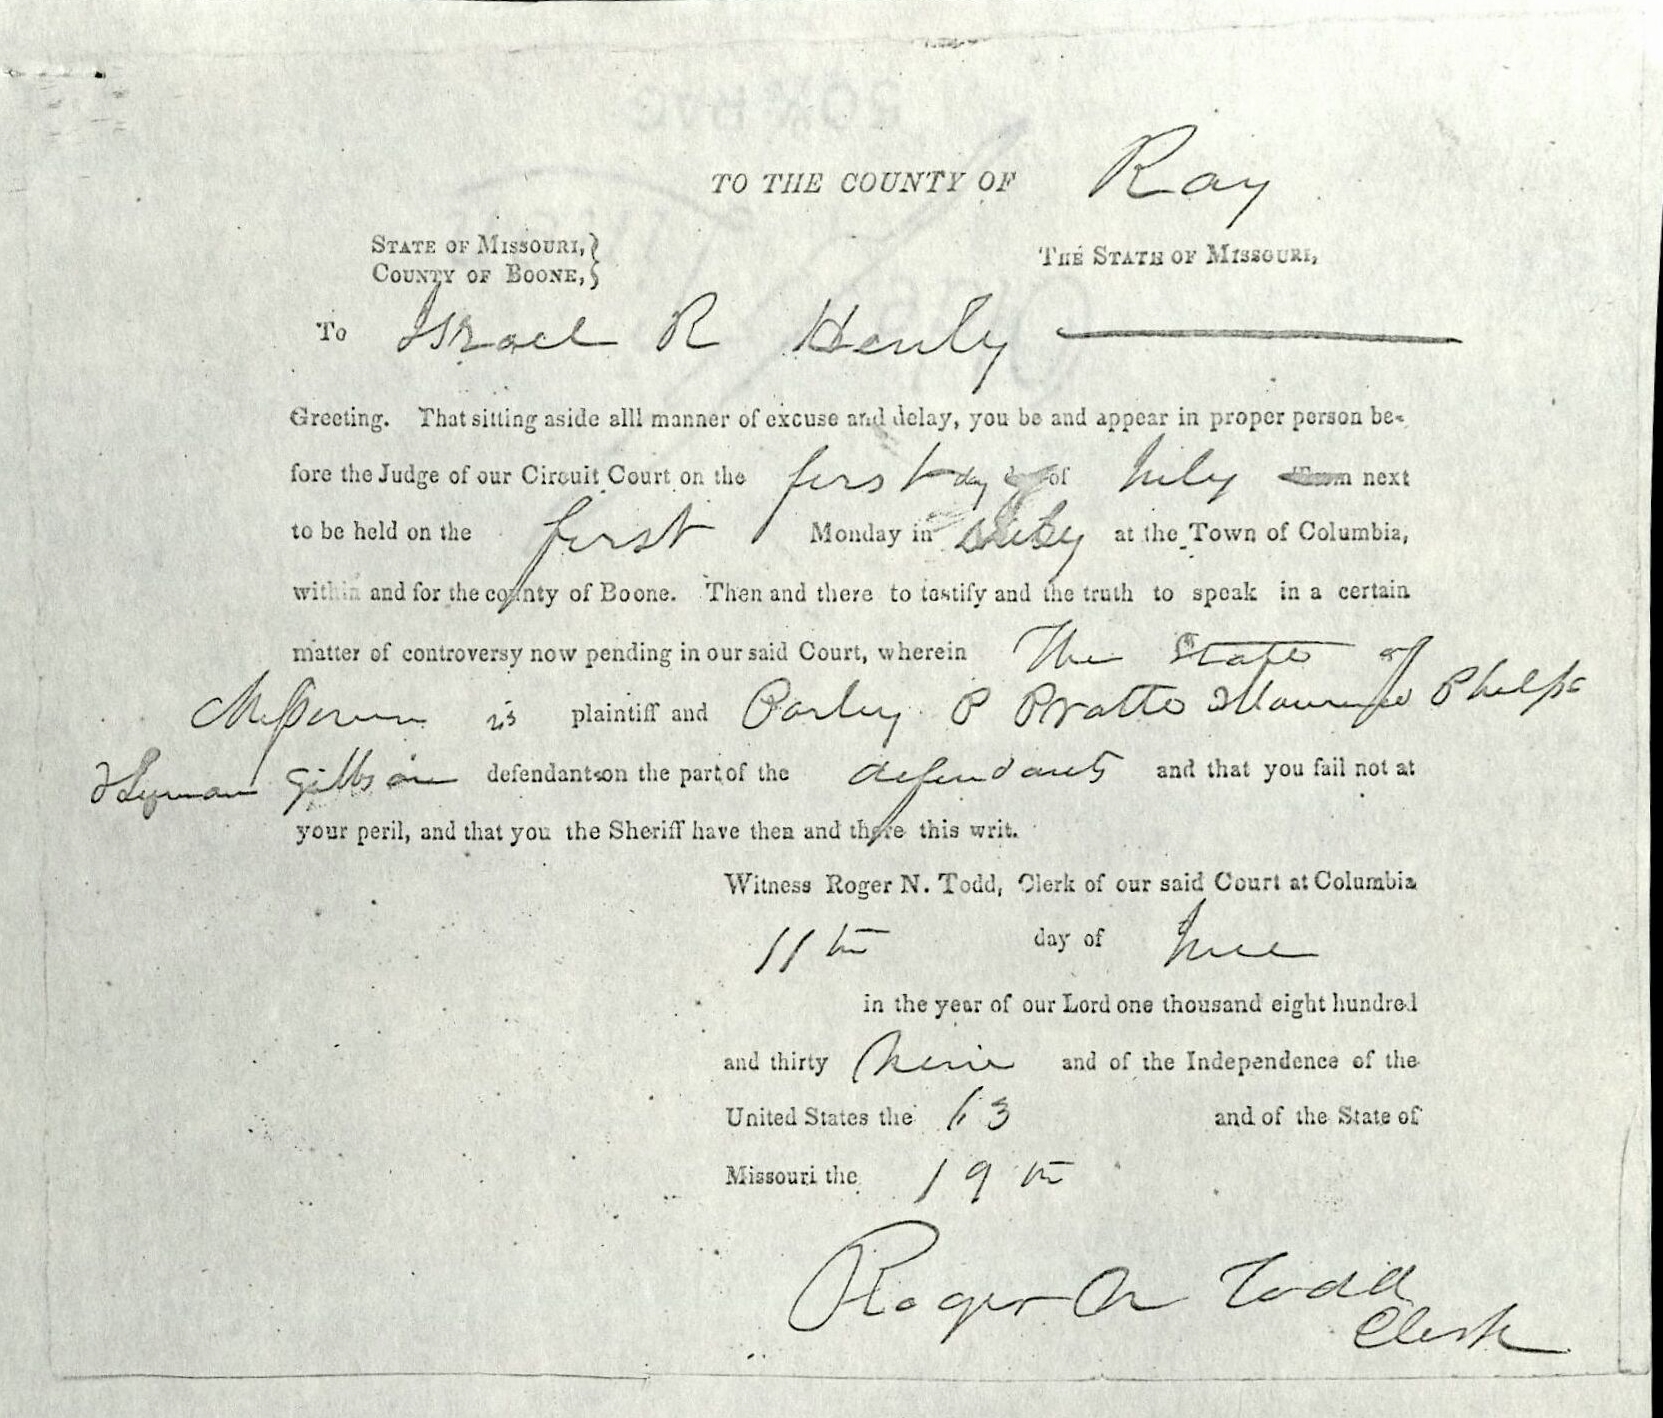 TO THE COUNTY OF Ray
STATE OF MISSOURI,}
COUNTY OF BOONE,}
THE STATE OF MISSOURI,
To Israel R Henly
Greeting. That sitting aside alll manner of excuse and delay, you be and appear in proper person be-
fore the Judge of our Circuit Court on the first day of July next
to be held on the first Monday in July at the Town of Columbia,
within and for the county of Boone. Then and there to testify and the truth to speak in a certain
matter of controversy now pending in our said Court, wherein The State of
Missouri is plaintiff and Parley P Pratt & Maurice Phelps
& Lyman Gibbs are defendants on the part of the defendants and that you fail not at
your peril, and that you the Sheriff have then and there this writ.
Witness Roger N. Todd, Clerk of our said Court at Columbia
11th day of June
in the year of our Lord one thousand eight hundred
and thirty Nine and of the Independence of the
United States the 63
and of the State of
Missouri the 19th
Roger N Todd
Clerk